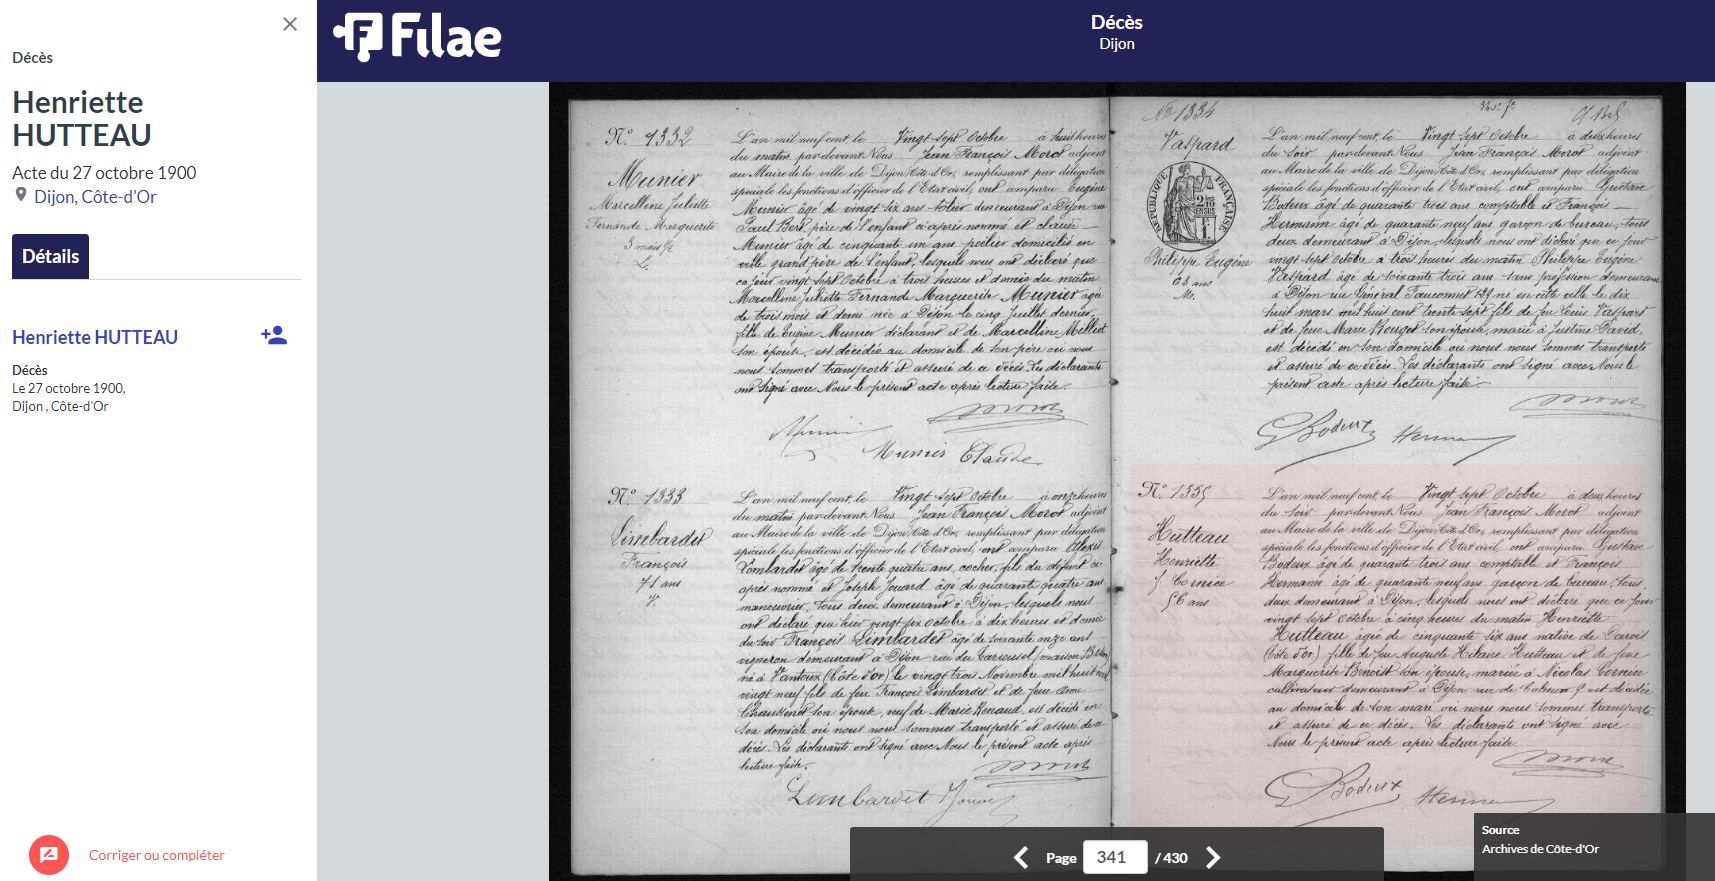 Décès
Henriette
HUTTEAU
Acte du 27 octobre 1900
Dijon, Côte-d'Or
Détails
Henriette HUTTEAU
Décès
Le 27 octobre 1900,
Dijon , Côte-d'Or
Corriger ou compléter
Filae
Décès
Dijon
N° 1332
Munier
Marcelline Juliette
Fernande Marguerite
3 mois ½
L'an mil neuf cent, le Vingt sept Octobre à huit heures
du matin par-devant Nous Jean François Morot adjoint
au Maire de la ville de Dijon, Côte d'Or, remplissant par délégation
spéciale les fonctions d'officier de l'Etat civil, ont comparu Eugène
Munier âgé de vingt six ans tolier demeurant à Dijon rue
Paul Bert, père de l'enfant ci-après nommé et Claude
Munier âgé de cinquante un ans poêlier domiciliés en
ville grand père de l'enfant, lesquels nous ont déclaré que
ce jour vingt sept Octobre à trois heures et demie du matin
Marcelline Juliette Fernande Marguerite Munier âgée
de trois mois et demi née à Dijon le cinq Juillet dernier,
fille de Eugène Munier déclarant et de Marcelline Milliet
son épouse, est décédée au domicile de son père où nous
nous sommes transporté et assuré de ce décès. Les déclarants
ont signé avec Nous le présent acte après lecture faite.
Morot
Munier
Munier Claude
N° 1333
Limbardet
François
71 ans
V.
L'an mil neuf cent, le Vingt sept Octobre à onze heures
du matin par-devant Nous Jean François Morot adjoint
au Maire de la ville de Dijon, Côte d'Or, remplissant par délégation
spéciale les fonctions d'officier de l'Etat civil, ont comparu Alexis
Lombardet âgé de trente quatre ans, cocher, fils du défunt ci-
après nommé et Joseph Jouard âgé de quarante quatre ans
manoeuvrier, tous deux demeurant à Dijon, lesquels nous
ont déclaré que hier vingt six octobre à dix heures et demie
du soir François Limbardet âgé de soixante onze ans
vigneron demeurant à Dijon rue du Carrousel (maison
né à Vantoux (Côte d'or) le vingt trois Novembre mil huit cent
vingt neuf fils de feu François Limbardet et de feue Anne
Chaussenot son épouse, veuf de Marie Renaud, est décédé en
son domicile où nous nous sommes transporté et assuré de ce
décès. Les déclarants ont signé avec Nous le présent acte après
lecture faite.
Morot
Limbardet Jouard
N° 1334
Vaspard
RÉPUBLIQUE FRANÇAISE
Philippe Eugène
63 ans
M.
L'an mil neuf cent, le Vingt sept Octobre à deux heures
du soir par-devant Nous Jean François Morot adjoint
au Maire de la ville de Dijon, Côte d'Or, remplissant par délégation
spéciale les fonctions d'officier de l'Etat civil, ont comparu Gustave
Bodeux âgé de quarante trois ans comptable et François
Hermann âgé de quarante neuf ans garçon de bureau, tous
deux demeurant à Dijon, lesquels nous ont déclaré que ce jour
vingt sept Octobre à trois heures du matin Philippe Eugène
Vaspard âgé de soixante trois ans sans profession demeurant
à Dijon rue Général Fauconnet 129 né en cette ville le dix
huit mars mil huit cent trente sept fils de feu Louis Vaspard
et de feue Marie Rouget son épouse, marié à Justine David,
est décédé en son domicile où nous nous sommes transporté
et assuré de ce décès. Les déclarants ont signé avec Nous le
présent acte après lecture faite.
Morot
G Bodeux Hermann
N° 1335
Hutteau
Henriette
f. Cornice
56 ans
L'an mil neuf cent, le Vingt sept Octobre à deux heures
du soir par-devant Nous Jean François Morot adjoint
au Maire de la ville de Dijon, Côte d'Or, remplissant par délégation
spéciale les fonctions d'officier de l'Etat civil, ont comparu Gustave
Bodeux âgé de quarante trois ans comptable et François
Hermann âgé de quarante neuf ans garçon de bureau, tous
deux demeurant à Dijon, lesquels nous ont déclaré que ce jour
vingt sept Octobre à cinq heures du matin Henriette
Hutteau âgée de cinquante six ans native de Darois
(Côte d'or) fille de feu Auguste Hilaire Hutteau et de feue
Marguerite Benoist son épouse, mariée à Nicolas Cornice
cultivateur demeurant à Dijon rue de Colmar 9 est décédée
au domicile de son mari où nous nous sommes transporté
et assuré de ce décès. Les déclarants ont signé avec
Nous le présent acte après lecture faite.
Morot
G Bodeux Hermann
Page 341 / 430
Source
Archives de Côte-d'Or